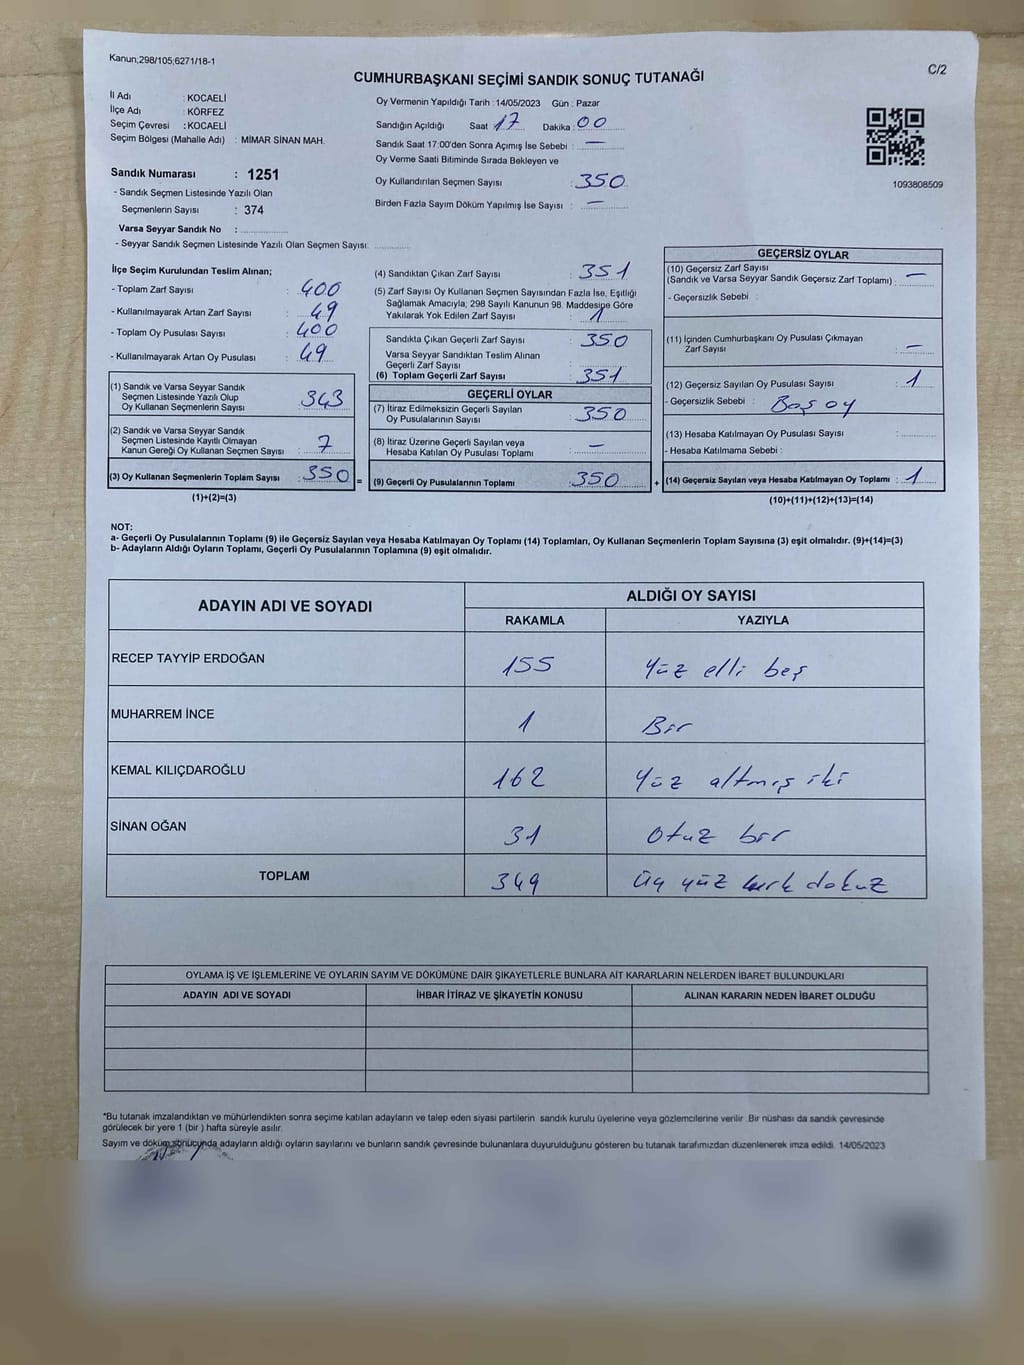 Kanun;298/105;6271/18-1
C/2
CUMHURBAŞKANI SEÇİMİ SANDIK SONUÇ TUTANAĞI
İl Adı : KOCAELİ
İlçe Adı : KÖRFEZ
Seçim Çevresi : KOCAELİ
Seçim Bölgesi (Mahalle Adı) : MİMAR SİNAN MAH.
Sandık Numarası : 1251
- Sandık Seçmen Listesinde Yazılı Olan
Seçmenlerin Sayısı : 374
Varsa Seyyar Sandık No :
- Seyyar Sandık Seçmen Listesinde Yazılı Olan Seçmen Sayısı:
Oy Vermenin Yapıldığı Tarih : 14/05/2023 Gün : Pazar
Sandığın Açıldığı Saat 17 Dakika : 00
Sandık Saat 17:00'den Sonra Açımış İse Sebebi : —
Oy Verme Saati Bitiminde Sırada Bekleyen ve
Oy Kullandırılan Seçmen Sayısı : 350
Birden Fazla Sayım Döküm Yapılmış İse Sayısı : —
1093808509
İlçe Seçim Kurulundan Teslim Alınan;
- Toplam Zarf Sayısı : 400
- Kullanılmayarak Artan Zarf Sayısı : 49
- Toplam Oy Pusulası Sayısı : 400
- Kullanılmayarak Artan Oy Pusulası : 49
(1) Sandık ve Varsa Seyyar Sandık
Seçmen Listesinde Yazılı Olup
Oy Kullanan Seçmenlerin Sayısı : 343
(2) Sandık ve Varsa Seyyar Sandık
Seçmen Listesinde Kayıtlı Olmayan
Kanun Gereği Oy Kullanan Seçmen Sayısı : 7
(3) Oy Kullanan Seçmenlerin Toplam Sayısı : 350 =
(1)+(2)=(3)
(4) Sandıktan Çıkan Zarf Sayısı : 351
(5) Zarf Sayısı Oy Kullanan Seçmen Sayısından Fazla İse, Eşitliği
Sağlamak Amacıyla; 298 Sayılı Kanunun 98. Maddesine Göre
Yakılarak Yok Edilen Zarf Sayısı : 1
Sandıkta Çıkan Geçerli Zarf Sayısı : 350
Varsa Seyyar Sandıktan Teslim Alınan
Geçerli Zarf Sayısı :
(6) Toplam Geçerli Zarf Sayısı : 351
GEÇERLİ OYLAR
(7) İtiraz Edilmeksizin Geçerli Sayılan
Oy Pusulalarının Sayısı : 350
(8) İtiraz Üzerine Geçerli Sayılan veya
Hesaba Katılan Oy Pusulası Toplamı : —
(9) Geçerli Oy Pusulalarının Toplamı : 350 +
GEÇERSİZ OYLAR
(10) Geçersiz Zarf Sayısı
(Sandık ve Varsa Seyyar Sandık Geçersiz Zarf Toplamı) : —
- Geçersizlik Sebebi :
(11) İçinden Cumhurbaşkanı Oy Pusulası Çıkmayan
Zarf Sayısı : —
(12) Geçersiz Sayılan Oy Pusulası Sayısı : 1
- Geçersizlik Sebebi : Boş oy
(13) Hesaba Katılmayan Oy Pusulası Sayısı :
- Hesaba Katılmama Sebebi :
(14) Geçersiz Sayılan veya Hesaba Katılmayan Oy Toplamı : 1
(10)+(11)+(12)+(13)=(14)
NOT:
a- Geçerli Oy Pusulalarının Toplamı (9) ile Geçersiz Sayılan veya Hesaba Katılmayan Oy Toplamı (14) Toplamları, Oy Kullanan Seçmenlerin Toplam Sayısına (3) eşit olmalıdır. (9)+(14)=(3)
b- Adayların Aldığı Oyların Toplamı, Geçerli Oy Pusulalarının Toplamına (9) eşit olmalıdır.
ADAYIN ADI VE SOYADI
ALDIĞI OY SAYISI
RAKAMLA YAZIYLA
RECEP TAYYİP ERDOĞAN 155 Yüz elli beş
MUHARREM İNCE 1 Bir
KEMAL KILIÇDAROĞLU 162 Yüz altmış iki
SİNAN OĞAN 31 Otuz bir
TOPLAM 349 Üç yüz kırk dokuz
OYLAMA İŞ VE İŞLEMLERİNE VE OYLARIN SAYIM VE DÖKÜMÜNE DAİR ŞİKAYETLERLE BUNLARA AİT KARARLARIN NELERDEN İBARET BULUNDUKLARI
ADAYIN ADI VE SOYADI İHBAR İTİRAZ VE ŞİKAYETİN KONUSU ALINAN KARARIN NEDEN İBARET OLDUĞU
*Bu tutanak imzalandıktan ve mühürlendikten sonra seçime katılan adayların ve talep eden siyasi partilerin sandık kurulu üyelerine veya gözlemcilerine verilir .Bir nüshası da sandık çevresinde
görülecek bir yere 1 (bir ) hafta süreyle asılır.
Sayım ve döküm sonucunda adayların aldığı oyların sayılarını ve bunların sandık çevresinde bulunanlara duyurulduğunu gösteren bu tutanak tarafımızdan düzenlenerek imza edildi. 14/05/2023